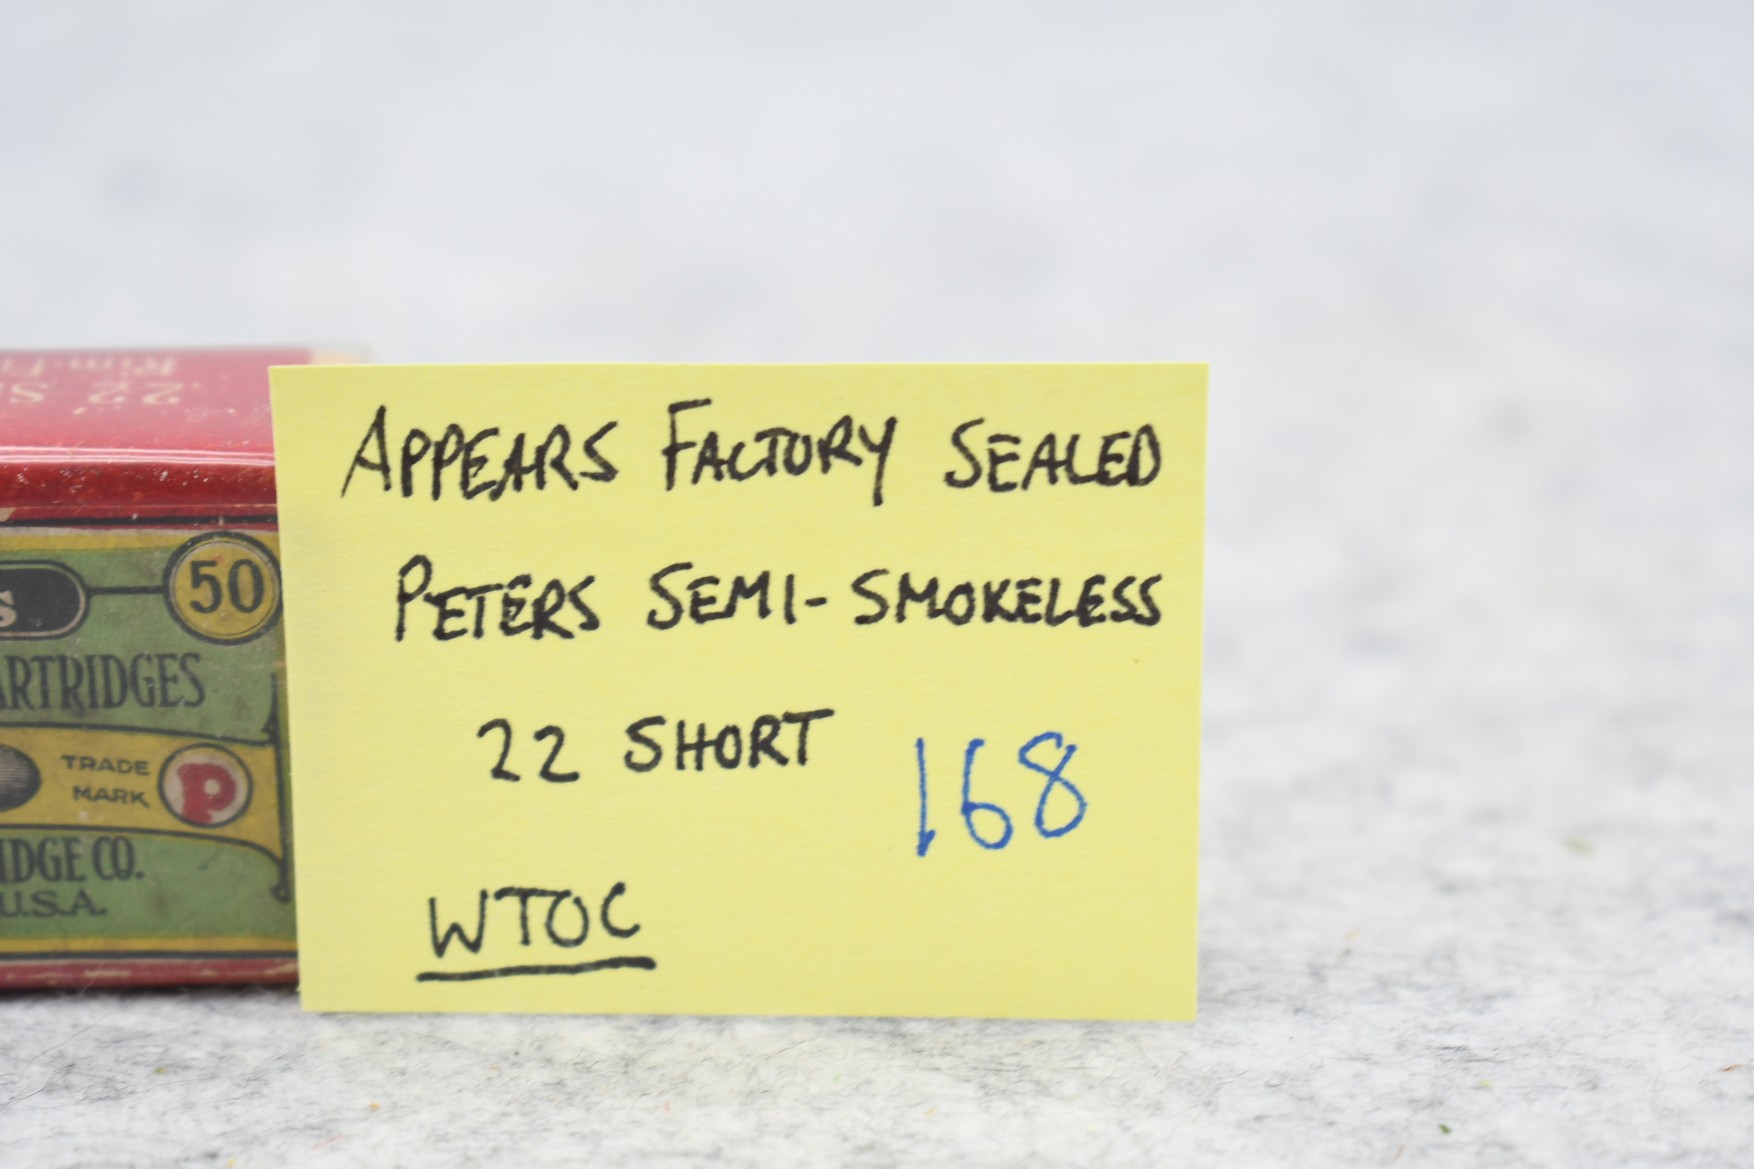 22 S
50
S
ARTRIDGES
TRADE
MARK
P
IDGE CO.
U.S.A.
APPEARS FACTORY SEALED
PETERS SEMI-SMOKELESS
22 SHORT
168
WTOC